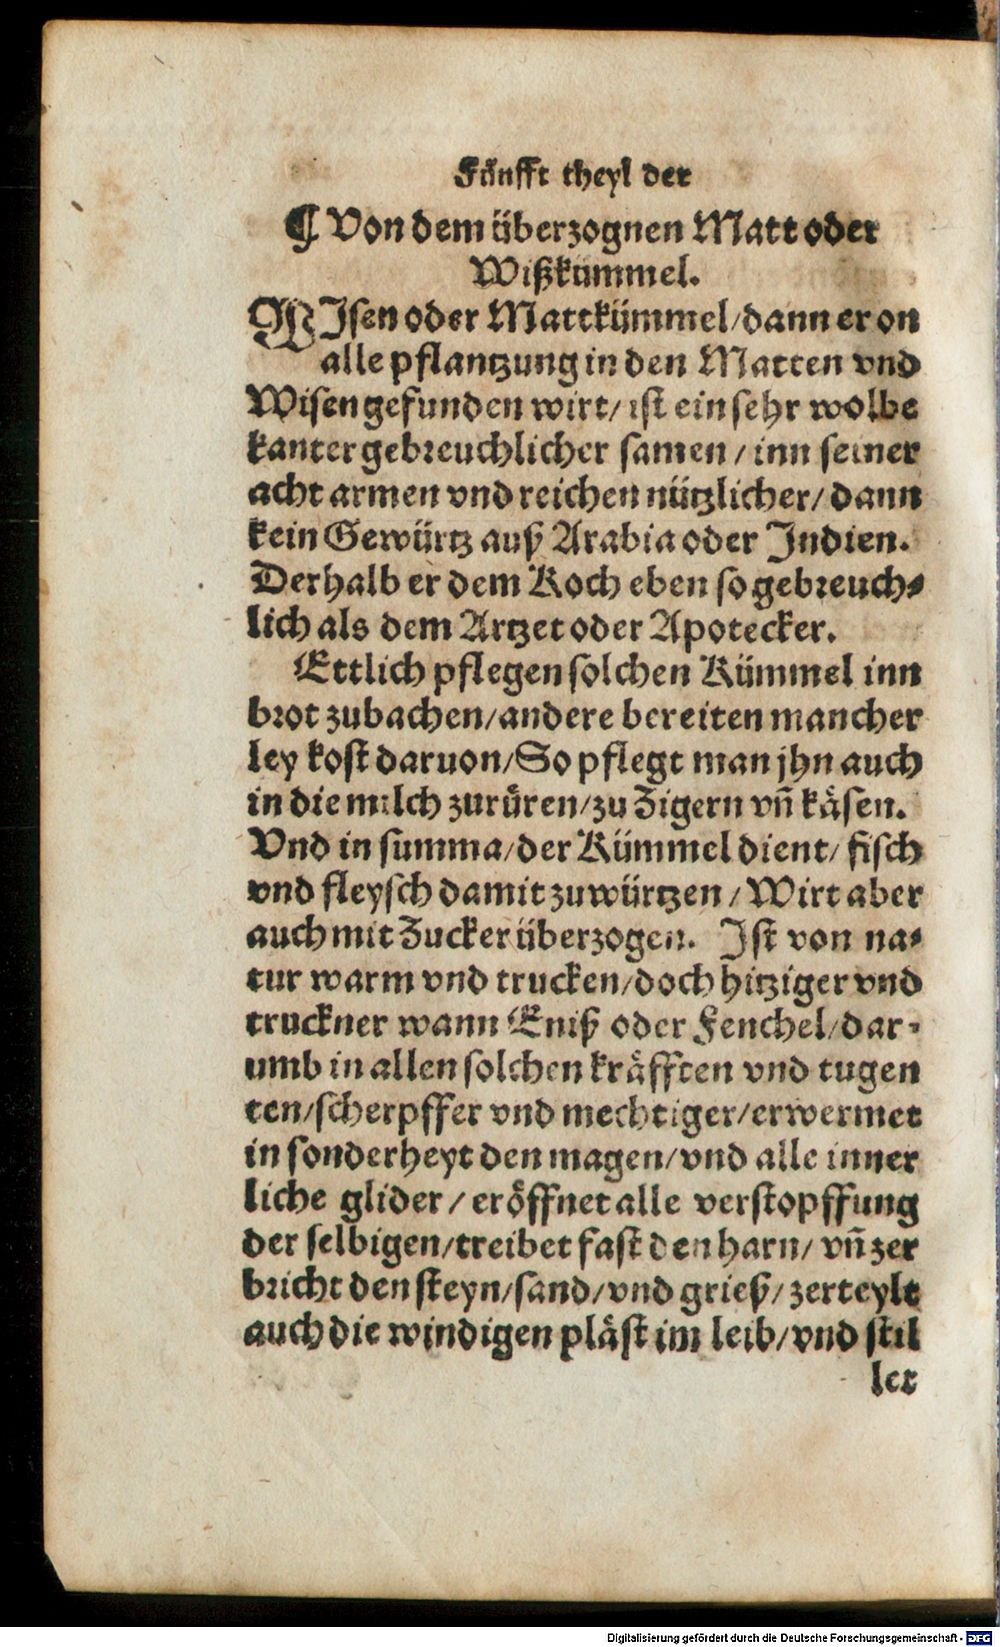 Fünfft theyl der
¶ Von dem überzognen Matt oder
Wißkümmel.
WIsen oder Mattkümmel/dann er on
alle pflantzung in den Matten vnd
Wisen gefunden wirt/ ist ein sehr wolbe
kanter gebreuchlicher samen / inn seiner
acht armen vnd reichen nützlicher/ dann
kein Gewürtz auß Arabia oder Indien.
Derhalb er dem Koch eben so gebreuch⸗
lich als dem Artzet oder Apotecker.
Ettlich pflegen solchen Kümmel inn
brot zubachen/andere bereiten mancher
ley kost daruon/So pflegt man jhn auch
in die milch zurüren/zu Zigern vñ käsen.
Vnd in summa/der Kümmel dient/ fisch
vnd fleysch damit zuwürtzen / Wirt aber
auch mit Zucker überzogen. Ist von na⸗
tur warm vnd trucken/doch hitziger vnd
truckner wann Eniß oder Fenchel/dar⸗
umb in allen solchen kräfften vnd tugen
ten/scherpffer vnd mechtiger/erwermet
in sonderheyt den magen/vnd alle inner
liche glider / eröffnet alle verstopffung
der selbigen/treibet fast den harn/ vñ zer
bricht den steyn/sand/vnd grieß/ zerteylt
auch die windigen pläst im leib/vnd stil
let
Digitalisierung gefördert durch die Deutsche Forschungsgemeinschaft - DFG